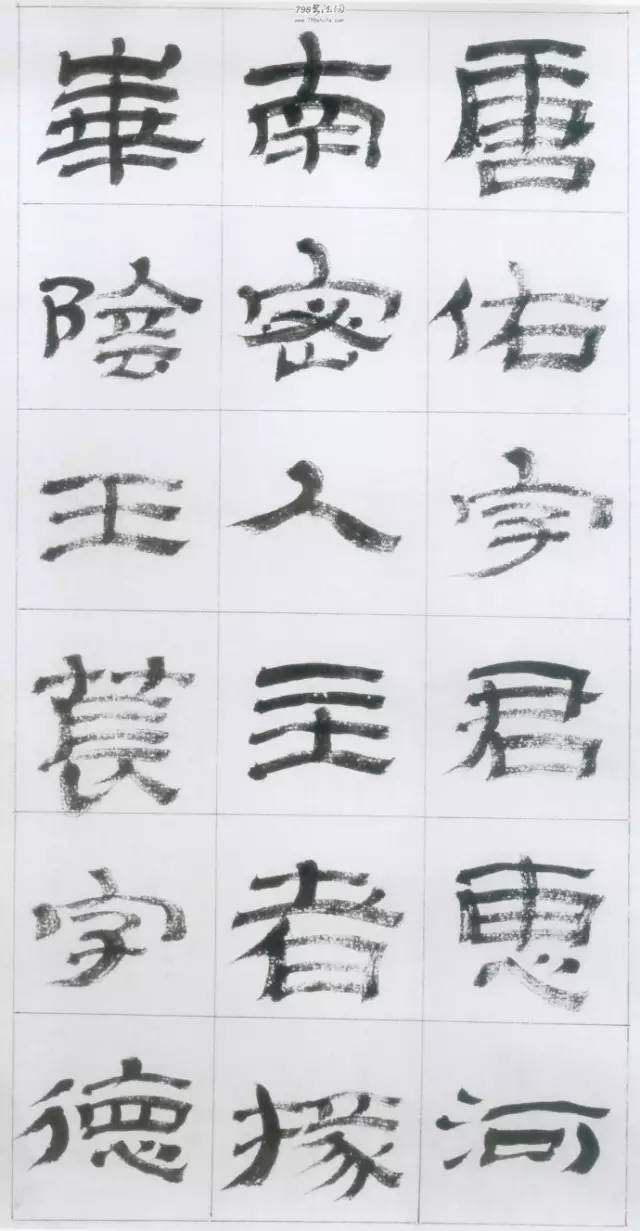 798书法网
www.798shufa.com
唐佑字君惠河
南密人主者掾
華陰王萇字德